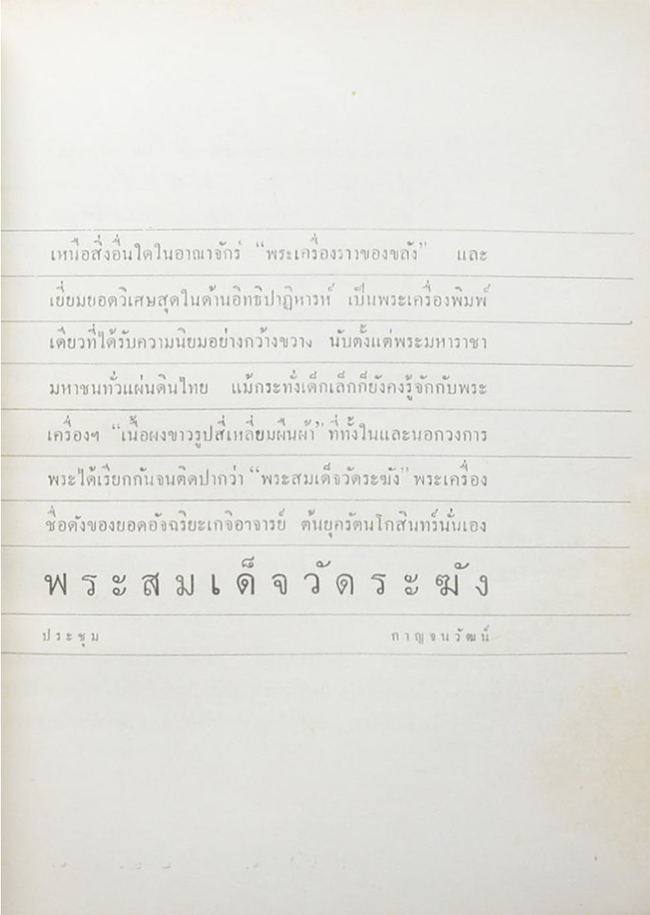 เหนือสิ่งอื่นใดในอาณาจักร์ “พระเครื่องรางของขลัง” และ
เยี่ยมยอดวิเศษสุดในด้านอิทธิปาฏิหารห์ เป็นพระเครื่องพิมพ์
เดียวที่ได้รับความนิยมอย่างกว้างขวาง นับตั้งแต่พระมหาราชา
มหาชนทั่วแผ่นดินไทย แม้กระทั่งเด็กเล็กก็ยังคงรู้จักกับพระ
เครื่องฯ “เนื้อผงขาวรูปสี่เหลี่ยมผืนผ้า” ที่ทั้งในและนอกวงการ
พระได้เรียกกันจนติดปากว่า “พระสมเด็จวัดระฆัง” พระเครื่อง
ชื่อดังของยอดอัจฉริยะเกจิอาจารย์ ต้นยุครัตนโกสินทร์นั่นเอง
พระสมเด็จวัดระฆัง
ประชุม กาญจนวัฒน์